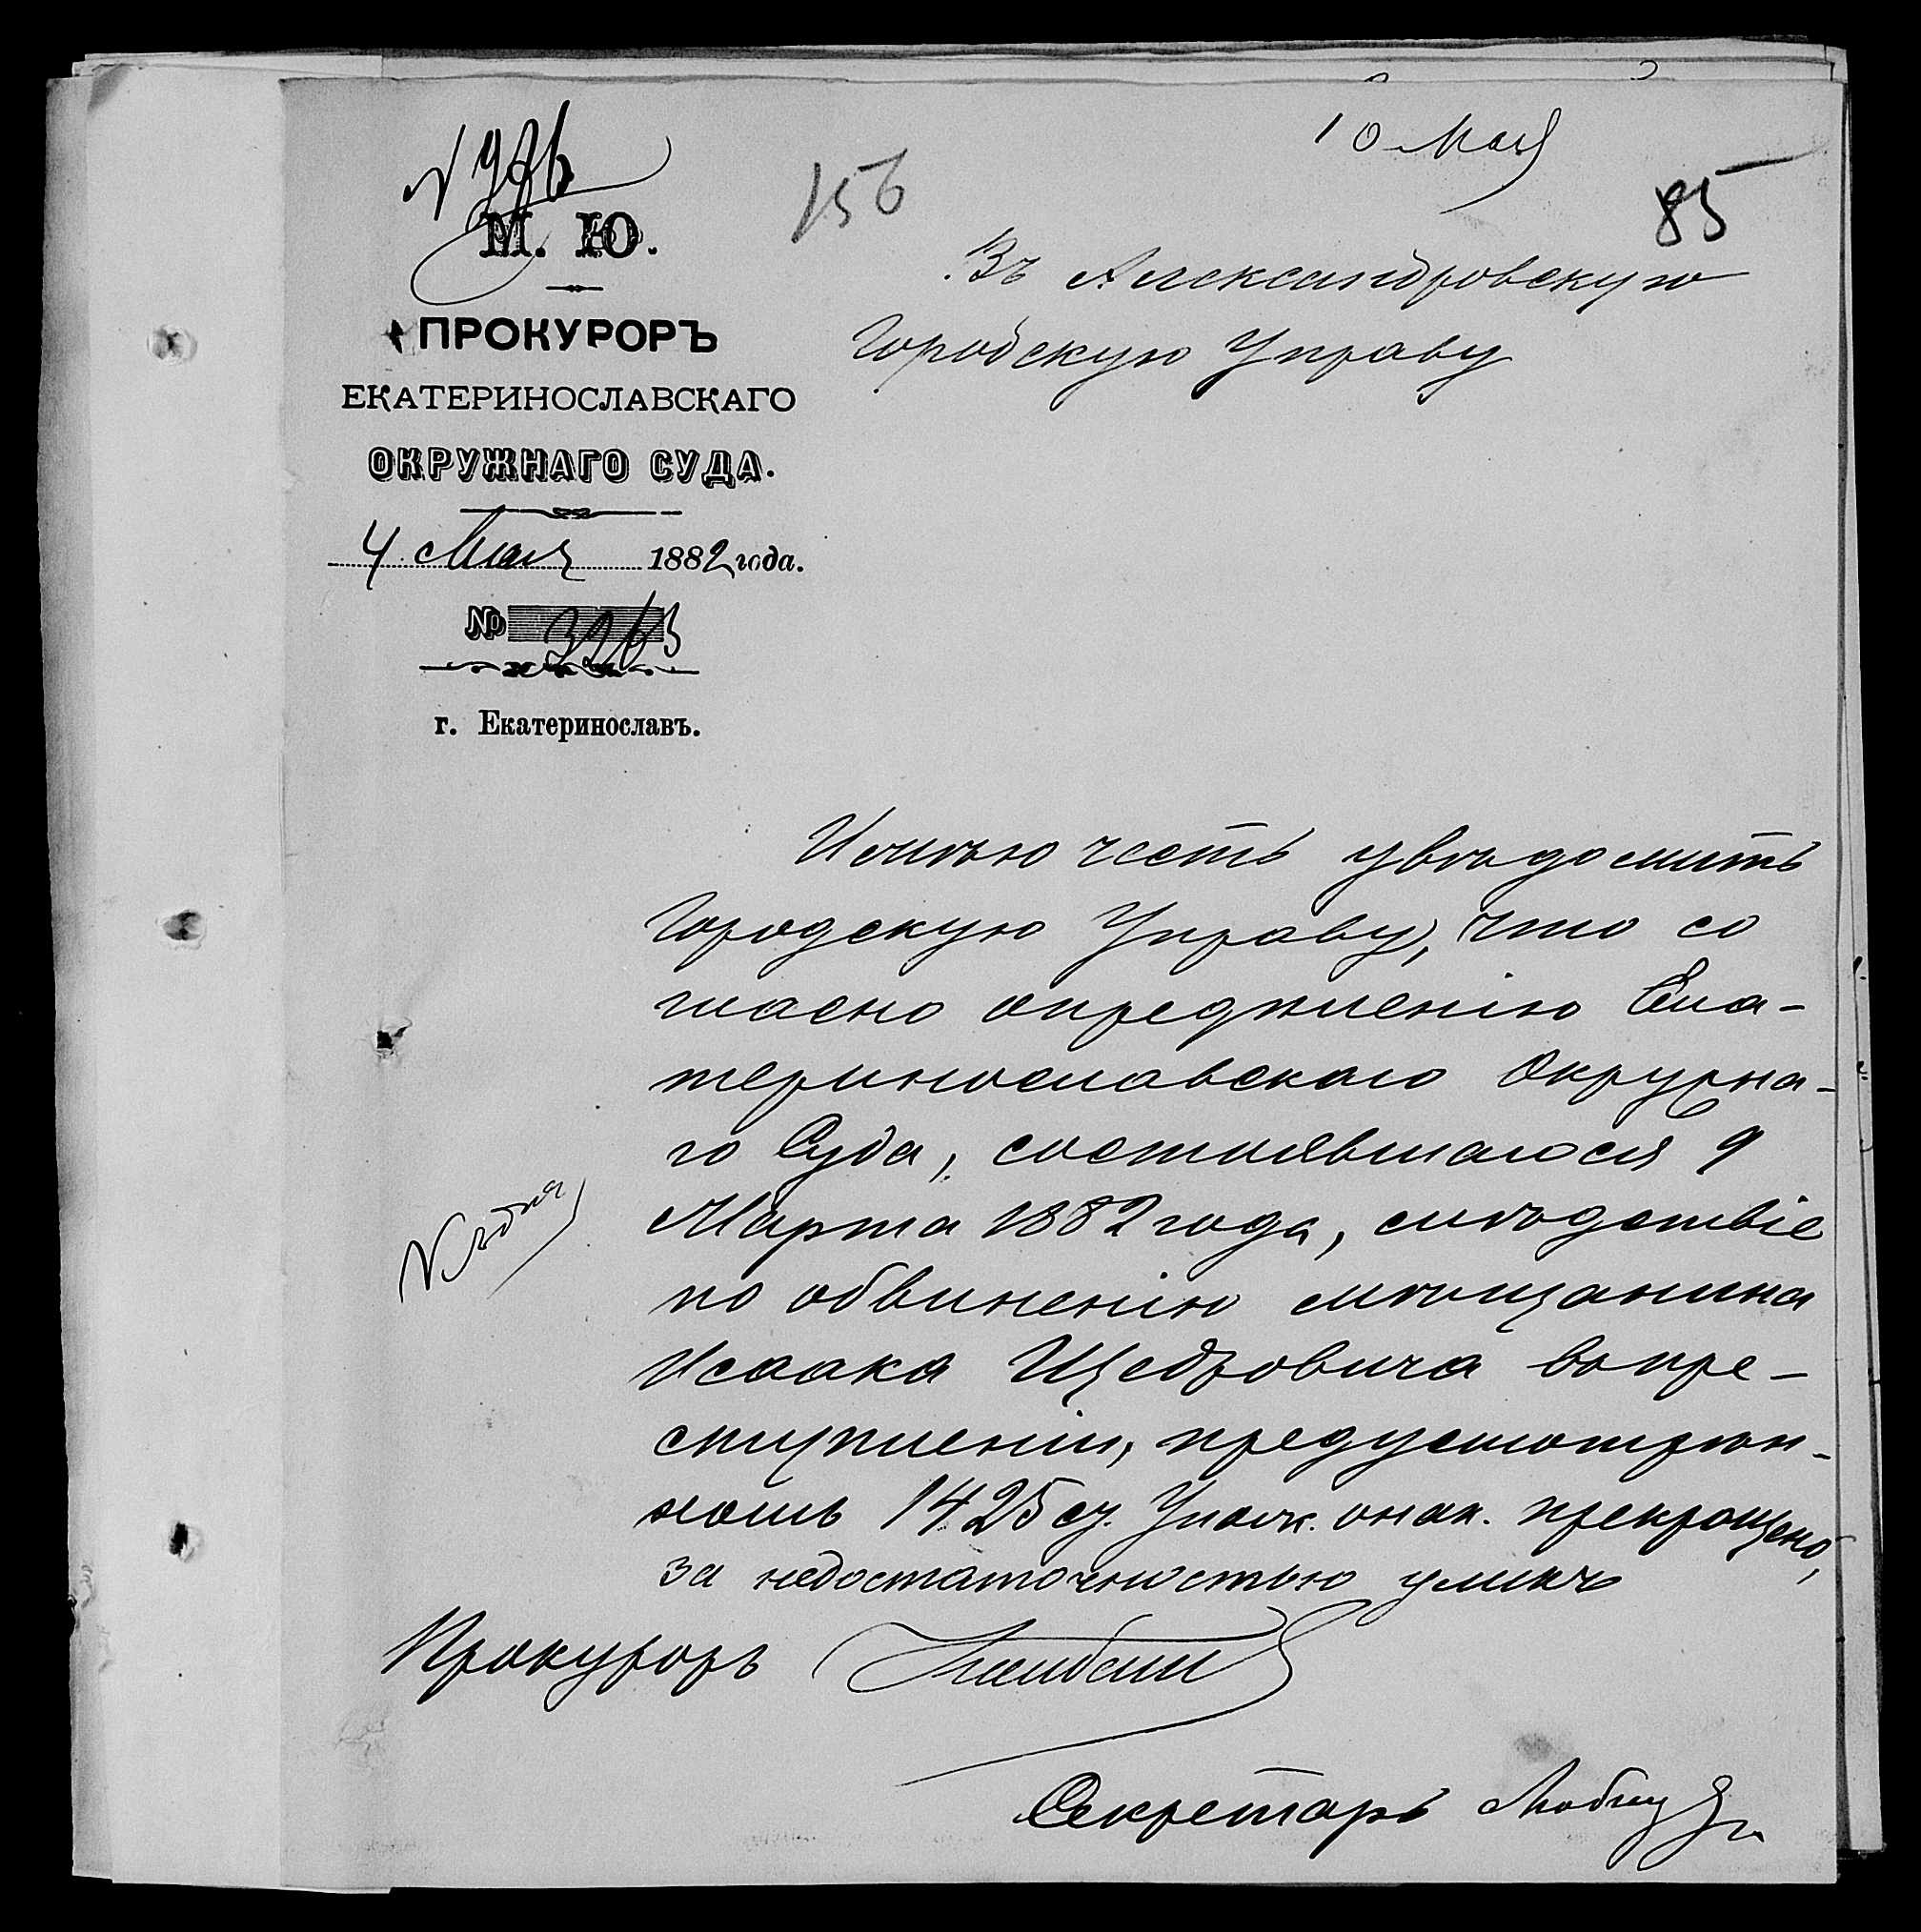 10 Мая
156
85
М. Ю.
ПРОКУРОРЪ
ЕКАТЕРИНОСЛАВСКАГО
ОКРУЖНАГО СУДА.
4 Мая 1882 года.
№ 3263
г. Екатеринославъ.
Въ Александровскую
Городскую Управу
Имѣю честь увѣдомить
Городскую Управу, что со
гласно опредѣленію Ека-
теринославскаго Окружна-
го Суда, состоявшагося 9
Марта 1882 года, слѣдствіе
по обвиненію мѣщанина
Исаака Щедровича въ пре-
ступленіи, предусмотрѣн-
номъ 1425 ст. Улож. о нак. прекращено,
за недостаточностью уликъ
Прокуроръ
Секретарь